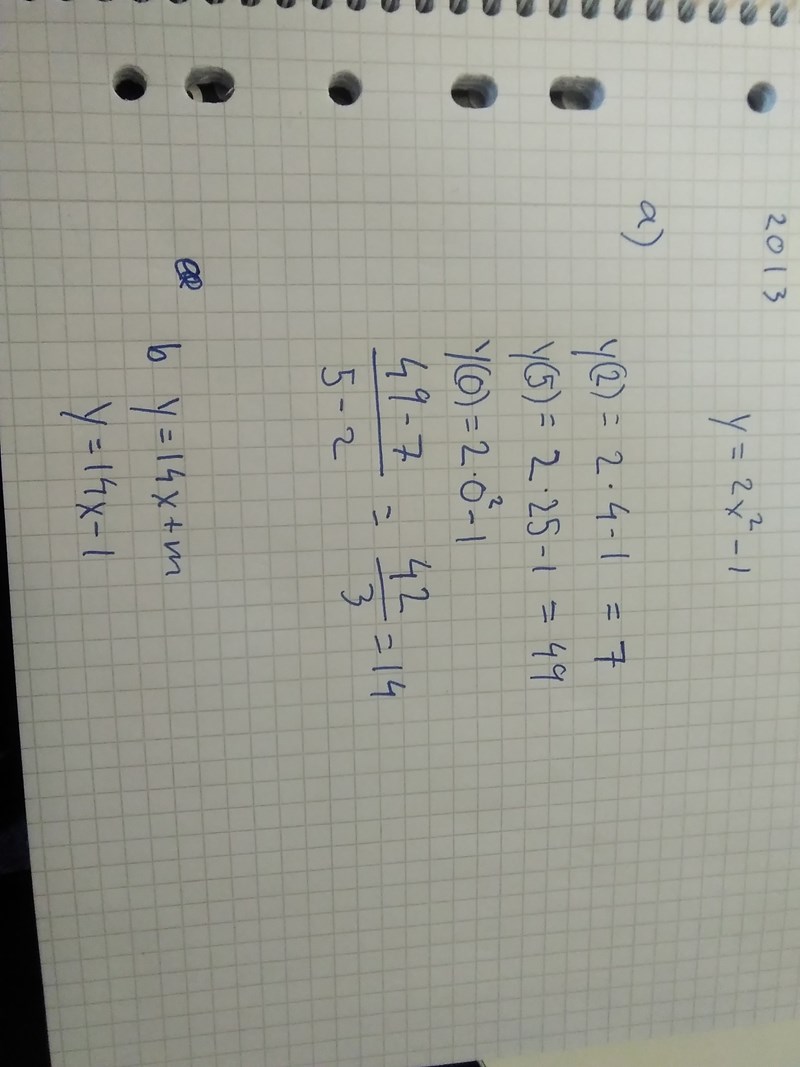 2013
y = 2x² - 1
a)
y(2) = 2·4-1 = 7
y(5) = 2·25-1 = 49
y(0) = 2·0²-1
49-7/5-2 = 42/3 = 14
b y = 14x+m
y = 14x-1